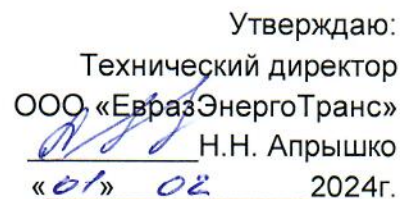 Утверждаю:
Технический директор
ООО «ЕвразЭнергоТранс»
Н.Н. Апрышко
«01» 02 2024г.